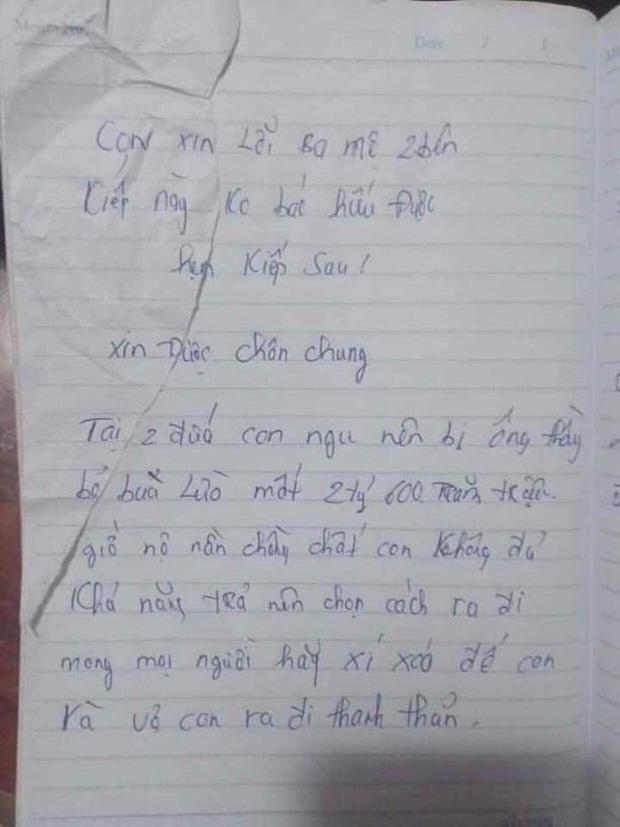 Date
Con xin Lỗi Ba mẹ 2 bên
Kiếp này Ko báo hiếu Được
hẹn Kiếp Sau!
xin Được chôn chung
Tại 2 đứa con ngu nên bị ông thầy
bỏ buà Lừa mất 2 tỷ 600 Trăm triệu.
giờ nợ nần chồng chất con Không đủ
Khả năng trả nên chọn cách ra đi
mong mọi người hãy xí xoá để con
và vợ con ra đi thanh thản.